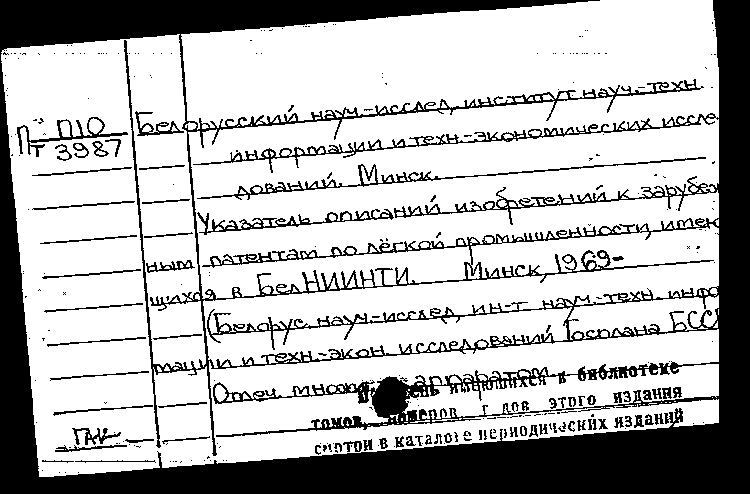 П П10
т 3987
Белорусский науч.-исслед. институт науч.-техн.
информации и техн.-экономических иссле-
дований. Минск.
Указатель описаний изобретений к зарубеж
ным патентам по лёгкой промышленности, имею
щихся в БелНИИНТИ. Минск, 1969-
(Белорус. науч.-исслед. ин-т науч.-техн. инфор
мации и техн.-экон. исследований Госплана БССР
Отпеч. множ. аппаратом.
имеющихся в библиотеке
томов, номеров, годов этого издания
смотри в каталоге периодических изданий